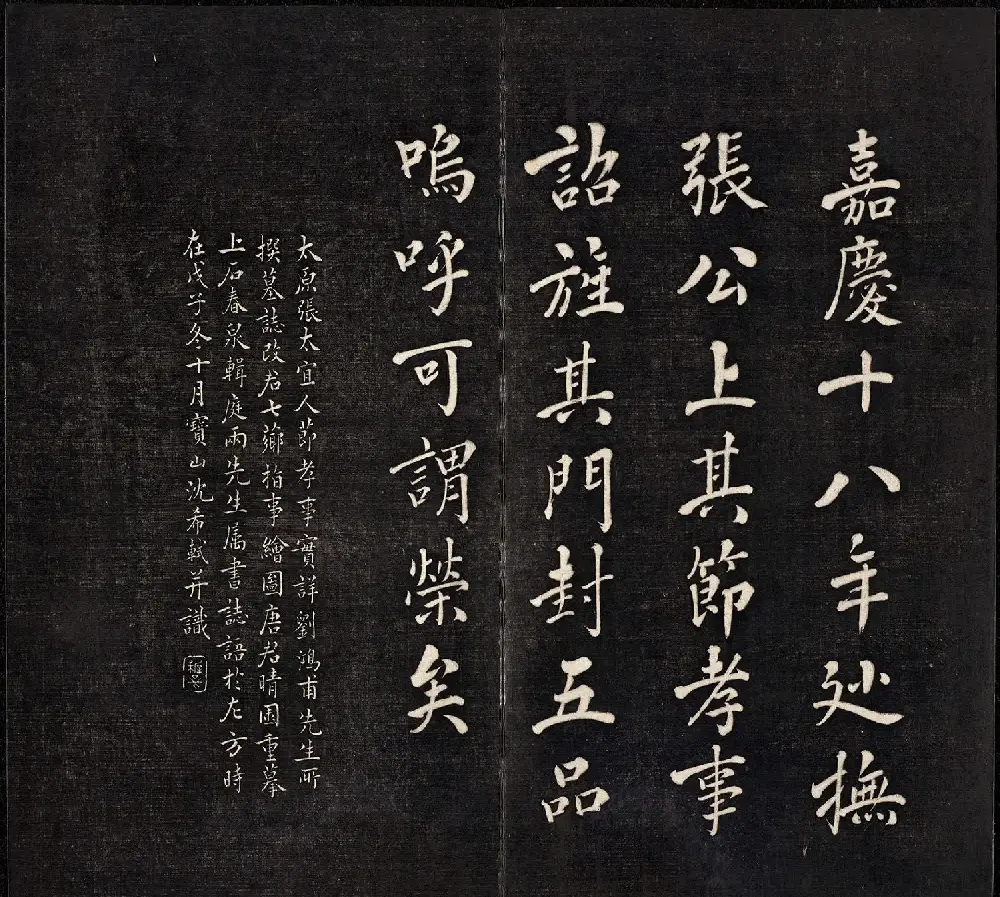 嘉慶十八年廵撫
張公上其節孝事
詔旌其門封五品
嗚呼可謂榮矣
太原張太宜人節孝事實詳劉鴻甫先生所
撰墓誌改君七薌指事繪圖唐君晴園重摹
上石春泉輯庭兩先生属書誌語於左方時
在戊子冬十月寶山沈希軾并識